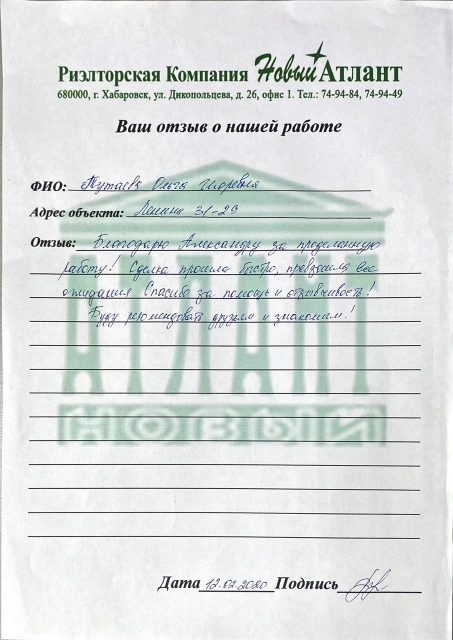 Риэлторская Компания Новый Атлант
680000, г. Хабаровск, ул. Дикопольцева, д. 26, офис 1. Тел.: 74-94-84, 74-94-49
Ваш отзыв о нашей работе
ФИО: Тутаева Ольга Игоревна
Адрес объекта: Ленина 31-29
Отзыв: Благодарю Александру за проделанную
работу! Сделка прошла быстро, превзошла все
ожидания Спасибо за помощь и отзывчивость!
Буду рекомендовать друзьям и знакомым!
АТЛАНТ
НОВЫЙ
Дата 12.02.2020 Подпись